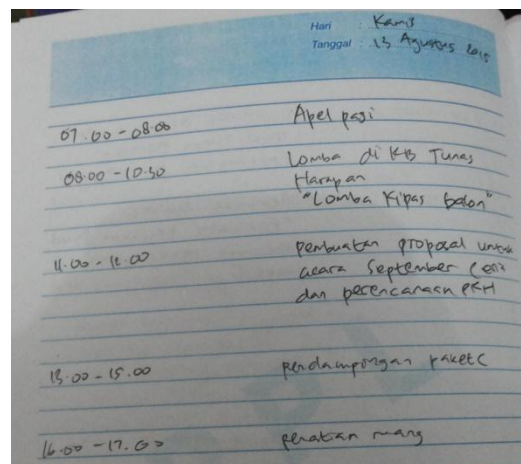 Hari : Kamis
Tanggal : 13 Agustus 2015
07.00 - 08.00 Apel pagi
08.00 - 10.30 Lomba di KB Tunas
Harapan
"Lomba Kipas balon"
11.00 - 12.00 pembuatan proposal untuk
acara September Ceria
dan perencanaan PKH
13.00 - 15.00 pendampingan paket C
16.00 - 17.00 penataan ruang